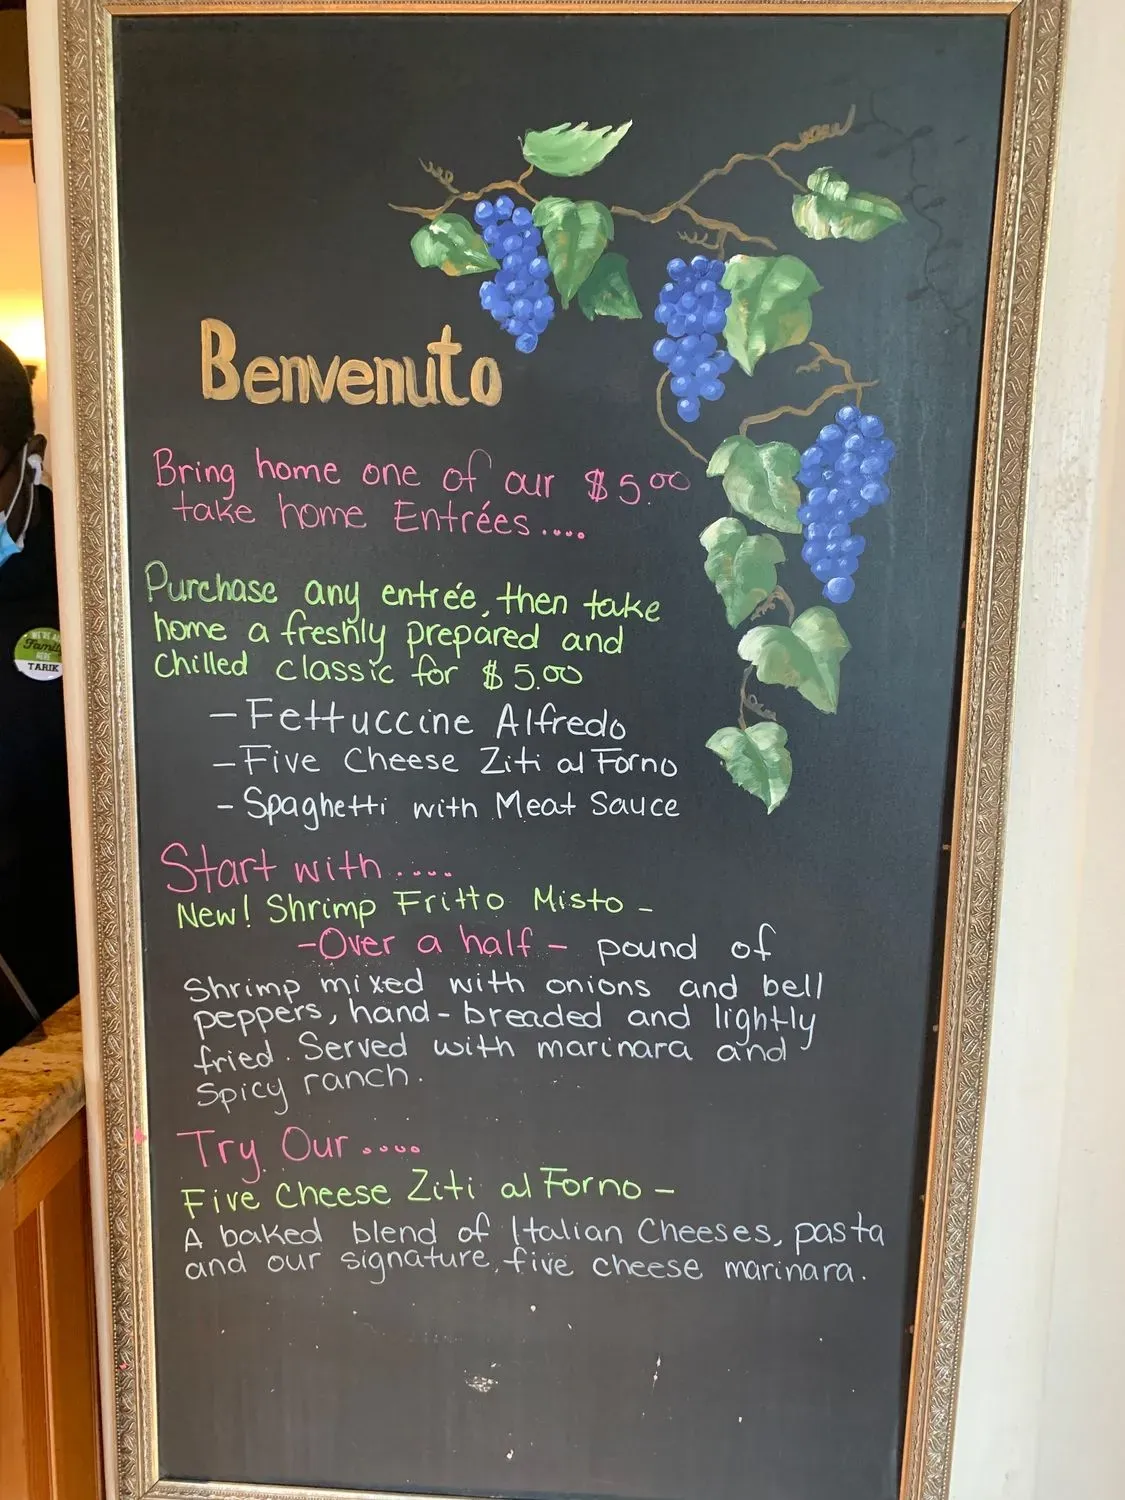 Benvenuto
Bring home one of our $5.00
take home Entrées....
Purchase any entrée, then take
home a freshly prepared and
chilled classic for $5.00
- Fettuccine Alfredo
- Five Cheese Ziti al Forno
- Spaghetti with Meat Sauce
Start with.....
New! Shrimp Fritto Misto -
-Over a half- pound of
Shrimp mixed with onions and bell
peppers, hand-breaded and lightly
fried. Served with marinara and
Spicy ranch.
Try Our....
Five Cheese Ziti al Forno -
A baked blend of Italian Cheeses, pasta
and our signature, five cheese marinara.
WE'RE ALL
Family
HERE
TARIK